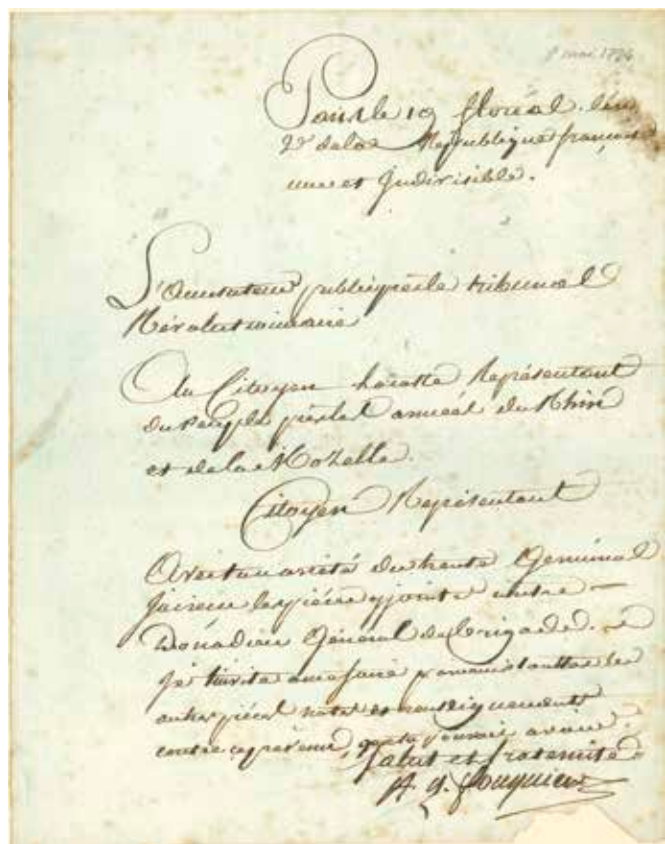 8 mai 1794
Paris le 19 floréal. l'an
2e de la République française
une et Indivisible.
L'accusateur public près le tribunal
Révolutionnaire
Au Citoyen Lacoste Représentant
du Peuple près les armées du Rhin
et de la Mozelle.
Citoyen Représentant
Avec ton arrêté du trente Germinal
j'ai reçu les pièces y jointes contre
Donadieu Général de Brigade.
Je t'invite à me faire toutes les
autres pièces notes et renseignements
contre ce prévenu, que tu pourrais avoir.
Salut et fraternité
A. Q. Fouquier